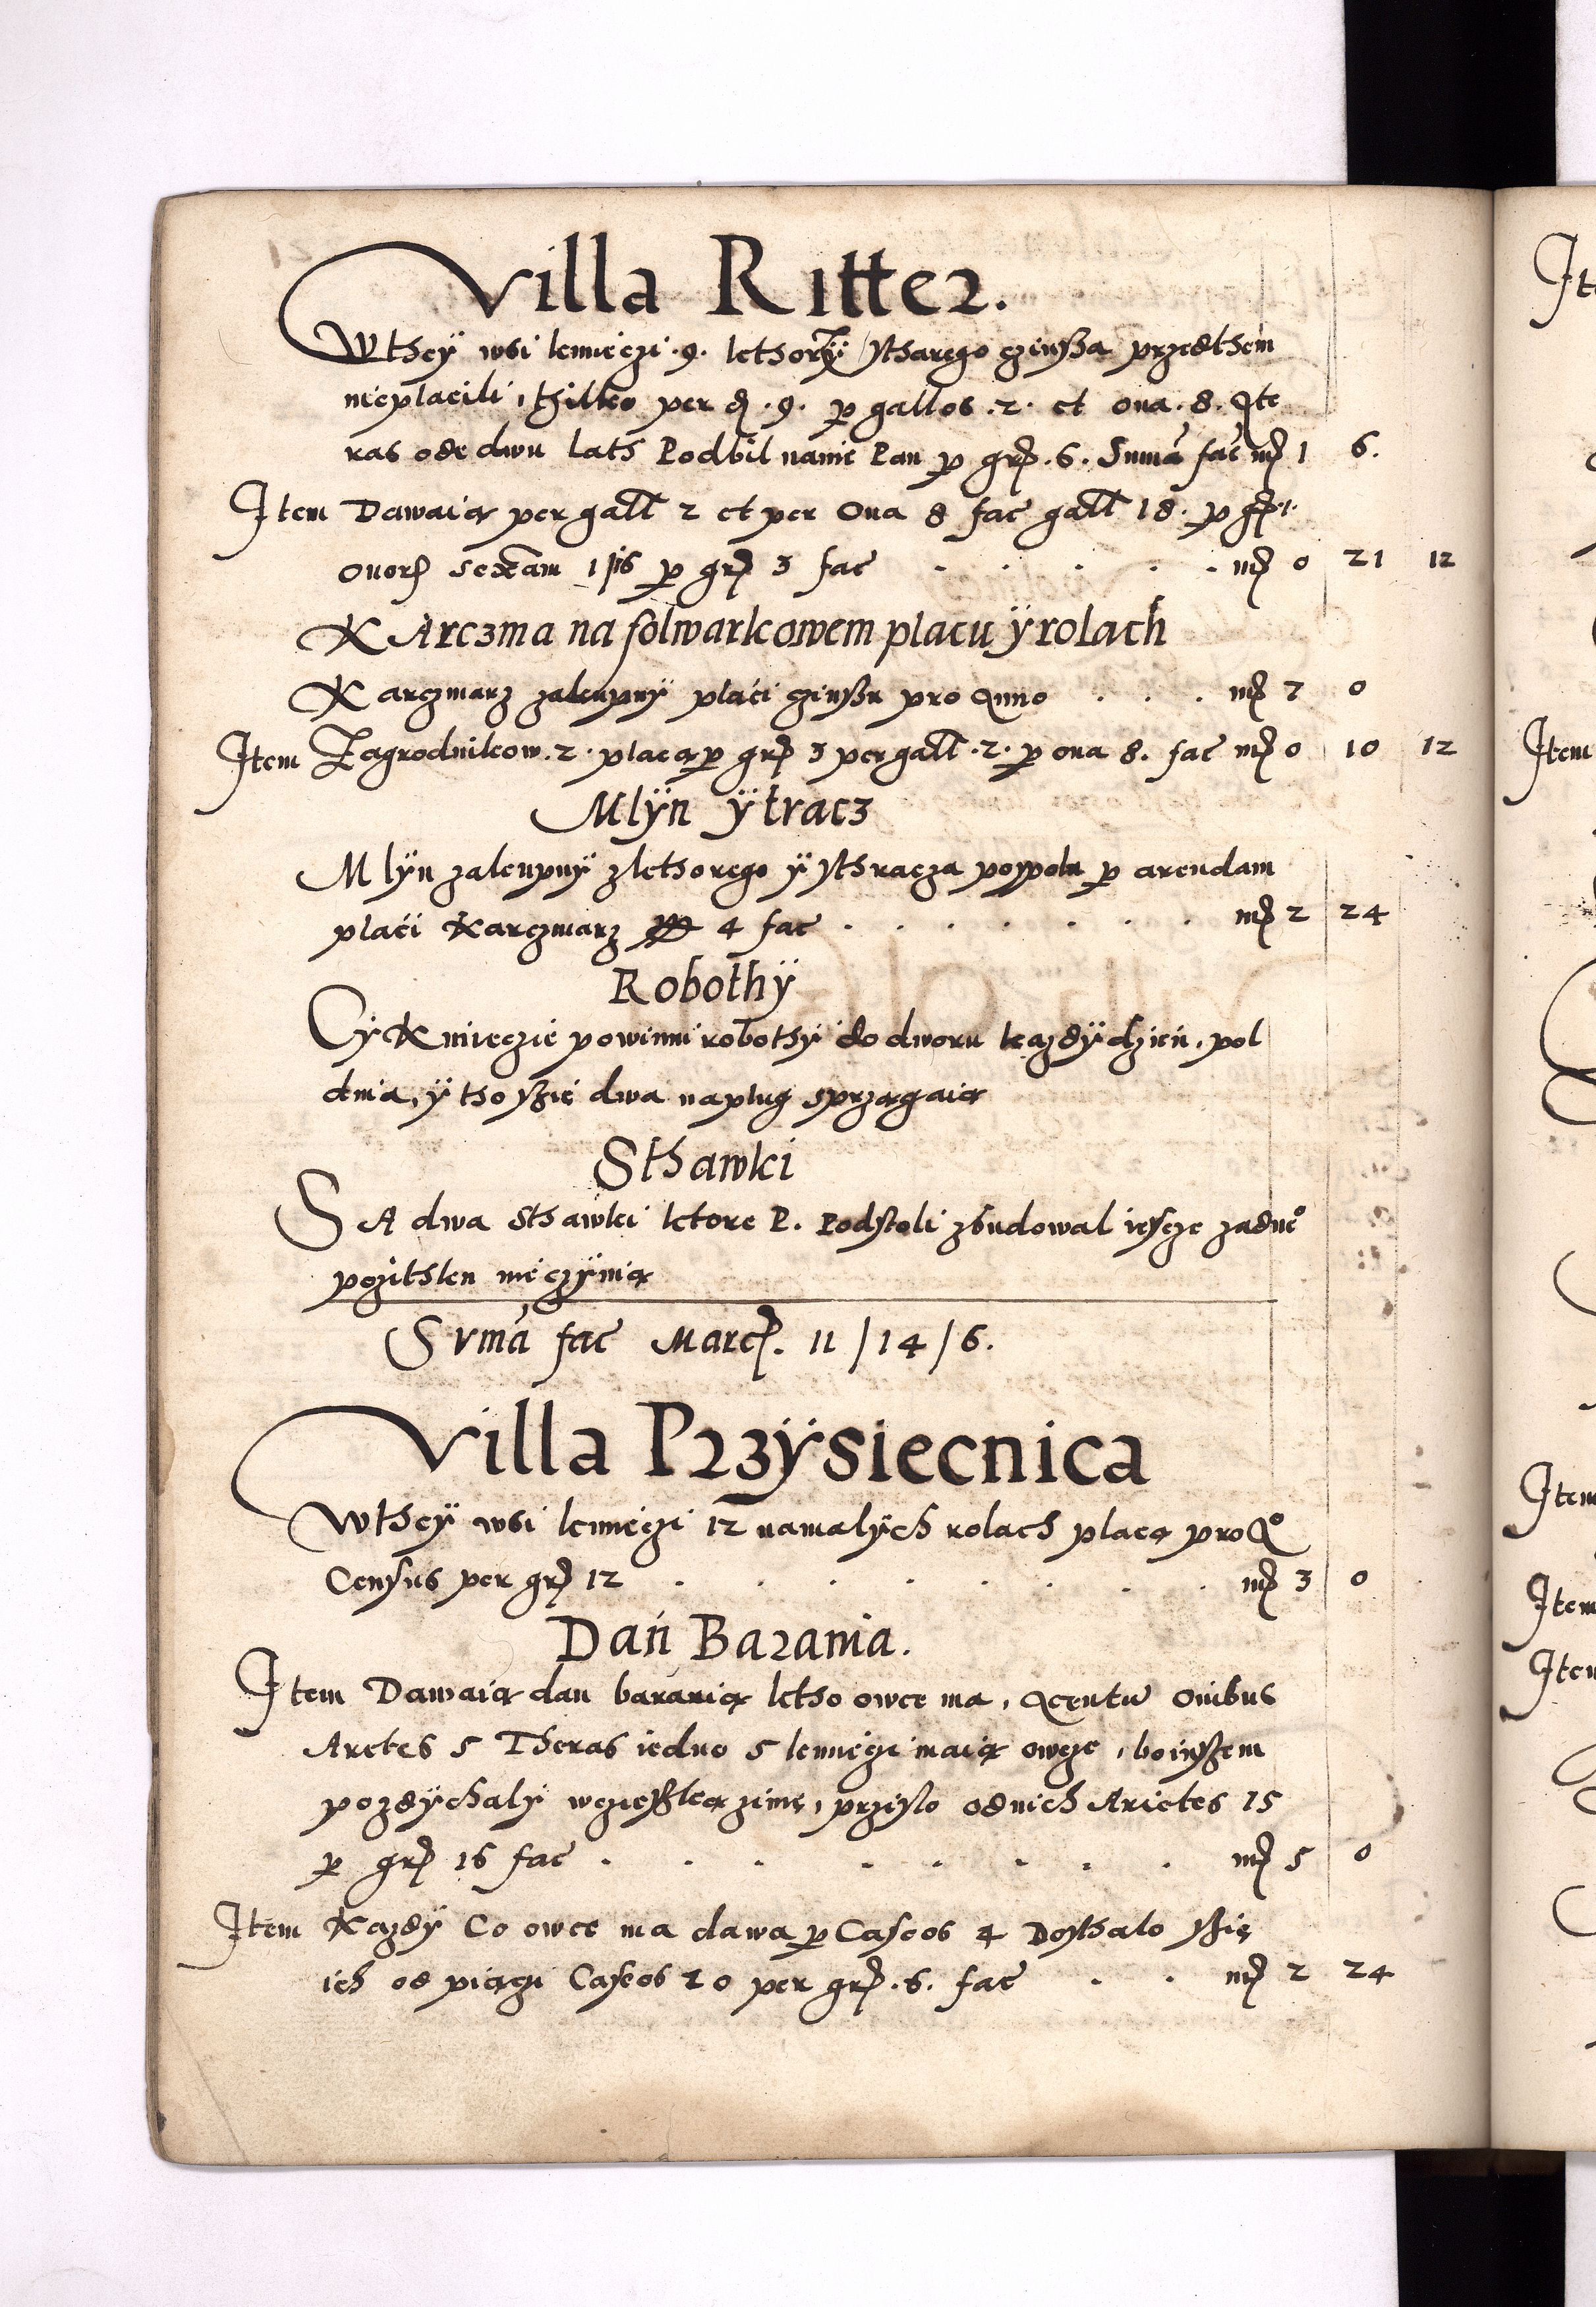 Villa Ritter.
Wthey wsi kmieczi .9. kthorzÿ stharego czinßa przedthem
nieplacili, tÿlko per d .9. p gallos .2. et oua .8. the
ras ode dwu lath Podbil nanie Pan p gr .6. Sumä fac mr 1 6.
Item Dawaią per gall 2 et per Oua 8 fac gall 18. p gr 1.
ouor sexam 1 p 3 fac . . . . . mr 0 21 12
KArczma na folwarkowem placu ÿ rolach
Karczmarz zakupnÿ placi czinßu pro Anno . . . mr 7 0
Item Zagrodnikow .2. placą p gr 3 per gall .2. p oua 8. fac mr 0 10 12
Mlÿn ÿ tracz
Mlÿn zakupnÿ z kthorego ÿ sthracza pospolu p arendam
placi Karczmarz 4 fac . . . . . . . mr 2 24
Robothÿ
Cÿ Kmieczie powinni robothÿ do dworu kazdÿ dzien, pol
dnia, ÿ tho ßie dwa naplug sprzągaią
Sthawki
SA dwa Sthawki ktore P. Podstoli zbudowal iescze zadne°
pozithku nieczÿnią
Summa fac Marc. 11/14/6.
Villa Przÿsiecnica
Wthey wsi kmieczi 12 namalÿch rolach placą pro A°
Census per gr 12 . . . . . . . . mr 3 0
Dań Barania.
Item Dawaią dan baranią ktho owce ma, Acentu Ouibus
Aretes 5 Theras iedno 5 kmieczi maią owcze, bo inßem
pozdÿchalÿ wczießką zimę, przisło odnich Arietes 15
p gr 16 fac . . . . . . . . mr 5 0
Item Kazdÿ Co owce ma dawa p Caseos 4 Dosthalo ßię
ich od piączi Caseos 20 per gr .6. fac . . mr 2 24